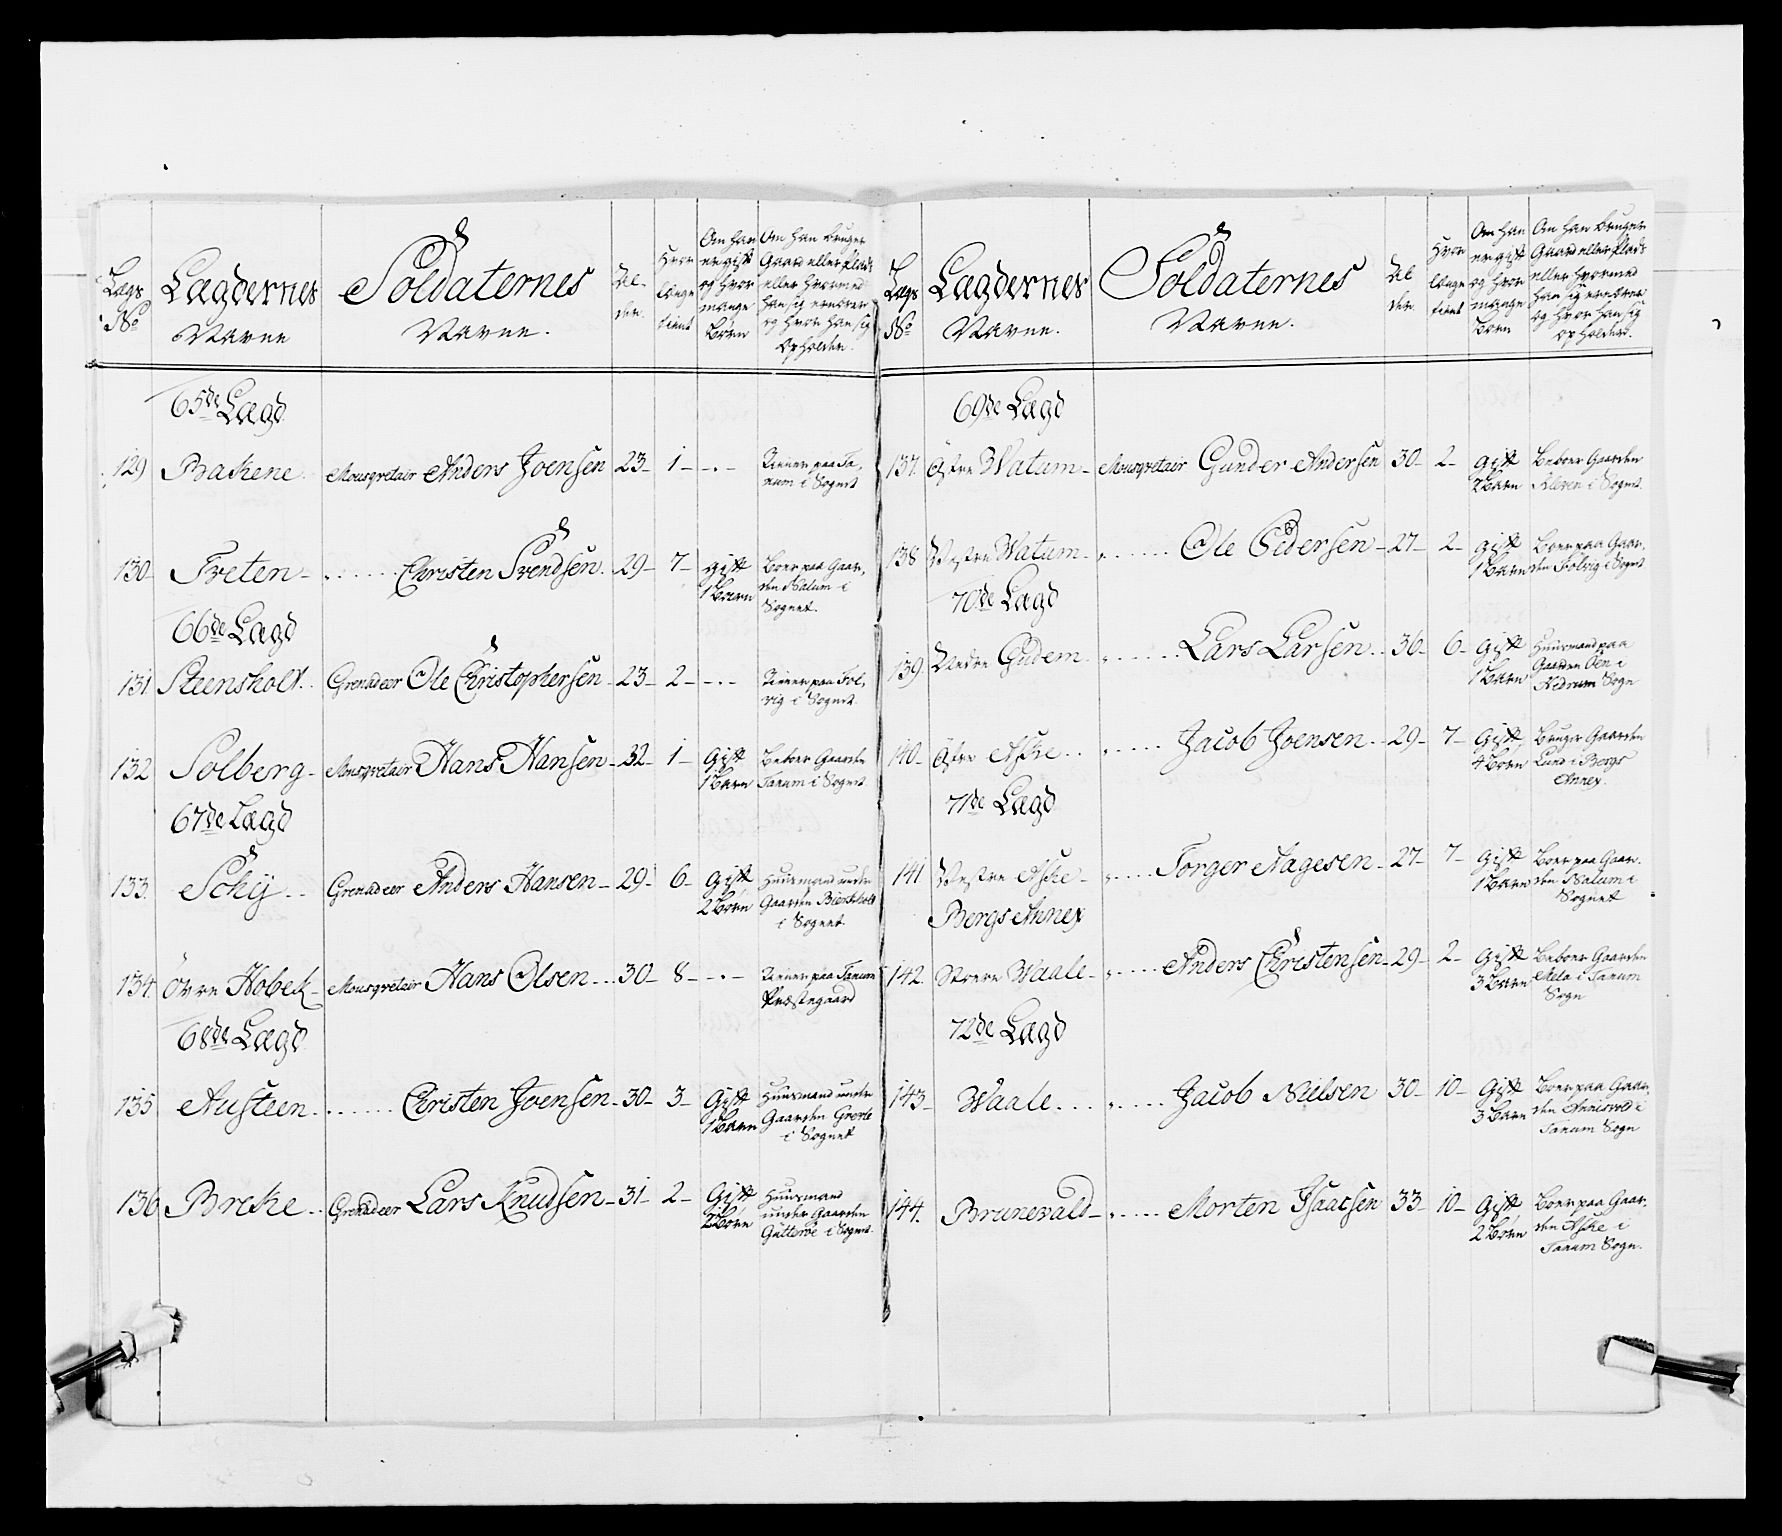 Lægs No
Lægdernes Navne
Soldaternes Navne.
Al- der.
Hvor længe tient
Om han er gift og hvor mange Børn
Om han bruger Gaard eller Plads eller hvormed han sig ernærer og hvor han sig opholder.
65de Lægd
129 Bakene Mousqvetair Anders Joensen 23 1 Tiener paa Ta- num i Sognet
130 Freten Christen Svendsen 29 7 gift 1 Barn Boer paa Gaar- den Nalum i Sognet.
66de Lægd
131 Steensholt Grenadeer Ole Christophersen 23 2 Tiener paa Fol- vig i Sognet
132 Solberg Mousqvetair Hans Hansen 32 1 Gift 1 Barn Beboer Gaarden Tanum i Sognet
67de Lægd
133. Schÿ Grenadeer Anders Hansen 29 6 Gift 2 Børn Huusmand under Gaarden i Sognet
134. Övre Hobek Mousqvetair Hans Olsen 30 8 Tiener paa Tanum Præstegaard
68de Lægd
135 Austeen Christen Joensen 30 3 Gift 1 Barn Huusmand under Gaarden i Sognet
136 Breke Grenadeer Lars Knudsen 31 2 Gift 2 Børn Huusmand under Gaarden i Sognet
Lægs No
Lægdernes Navne.
Soldaternes Navne.
Al der.
Hvor længe tient
Om han er gift og hvor mange Børn
Om han bruger Gaard eller Plads eller hvormed han sig ernærer og hvor han sig opholder.
69de Lægd
137. Östre Watum Mousqvetair Gunder Andersen 30 2 Gift 2 Børn Beboer Gaarden Kleven i Sognet
138 Westre Watum Ole Pedersen 27 2 gift 1 Barn Boer paa Gaar- den Folvig i Sognet
70de Lægd
139 Nedre Gudem Lars Larsen 36 6 Gift 1 Barn Huusmand paa Gaarden Öen i Hedrum Sogn
140 Östre Aske Jacob Joensen 29 7 Gift 4 Børn Bruger Gaarden Lund i Bergs Annex.
71de Lægd
141 Westre Aske Torger Aagesen 27 7 Gift 1 Barn Boer paa Gaar- den Nalum i Sognet
Bergs Annex
142. Store Waale Anders Christensen 29 2 Gift 3 Børn Beboer Gaarden Mela i Tanum Sogn
72de Lægd
143 Waale Jacob Nielsen 30 10 Gift 3 Børn Boer paa Gaar- den Annisvold i Tanum Sogn
144. Brunevald Morten Isaacsen 33 10 Gift 2 Børn Boer paa Gaar- den Aske i Tanum Sogn.